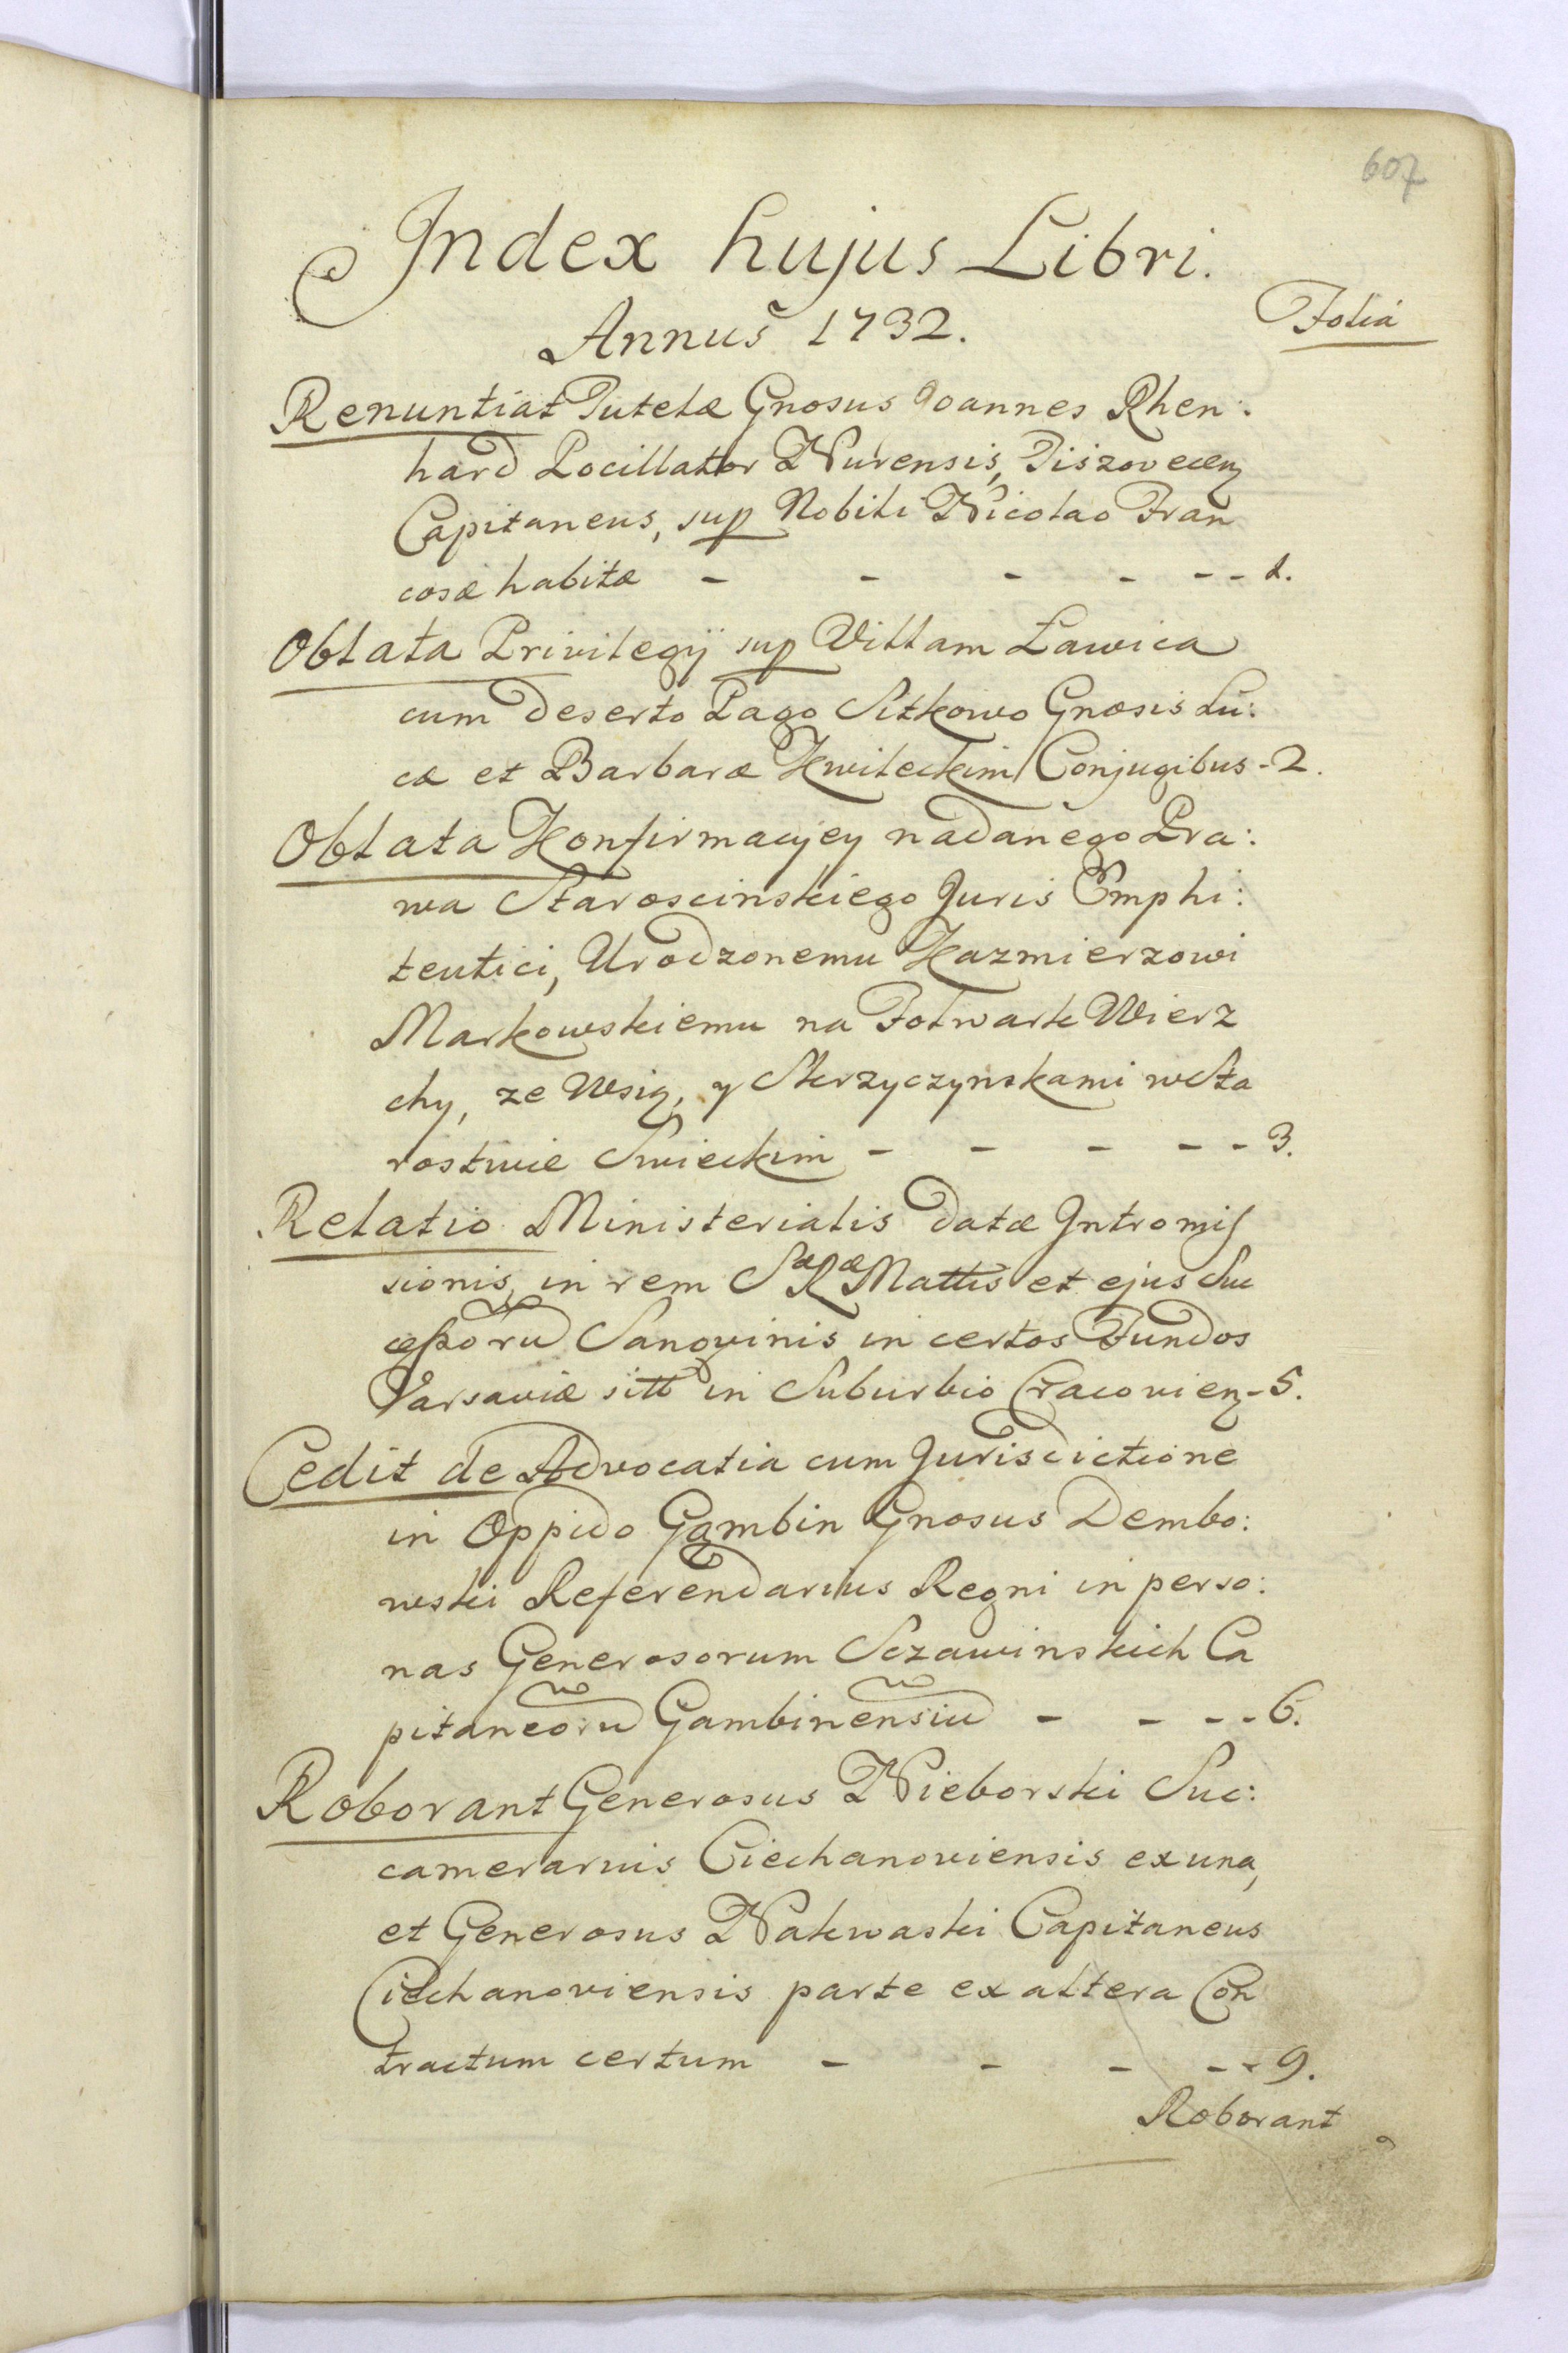 607
Index hujus Libri.
Annus 1732.
Folia
Renuntiat Tutelæ Gnosus Joannes Rhen:
hard Pocillator Nurensis, Tiszovecen
Capitaneus, sup Nobili Nicolao Fran
cosæ habitæ - - - - - - 1.
Oblata Privilegij sup Villam Ławica
cum deserto Pago Sitkowo Gnosis Lu:
cæ et Barbaræ Kwileckim Conjugibus - 2.
Oblata Konfirmacyjey nadanego Pra:
wa Staroscinskiego Juris Emphi:
teutici, Urodzonemu Kazmierzowi
Markowskiemu na Folwark Wierz
chy, ze Wsią, y Skrzyczynskami w Sta
rostwie Swieckim - - - - - 3.
Relatio Ministerialis datæ Intromis
sionis, in rem SæRæ Mattis et ejus Suc
cessorũ Sangvinis in certos Fundos
Varsaviæ sitt in Suburbio Cracovien - 5.
Cedit de Advocatia cum Jurisdictione
in Oppido Gąmbin Gnosus Dembo:
wski Referendarius Regni in perso:
nas Generosorum Sczawinskich Ca
pitaneorũ Gąmbinensiũ - - - - 6.
Roborant Generosus Nieborski Suc:
camerarius Ciechanoviensis ex una,
et Generosus Nakwaski Capitaneus
Ciechanoviensis parte ex altera Con
tractum certum - - - - - 9.
Roborant